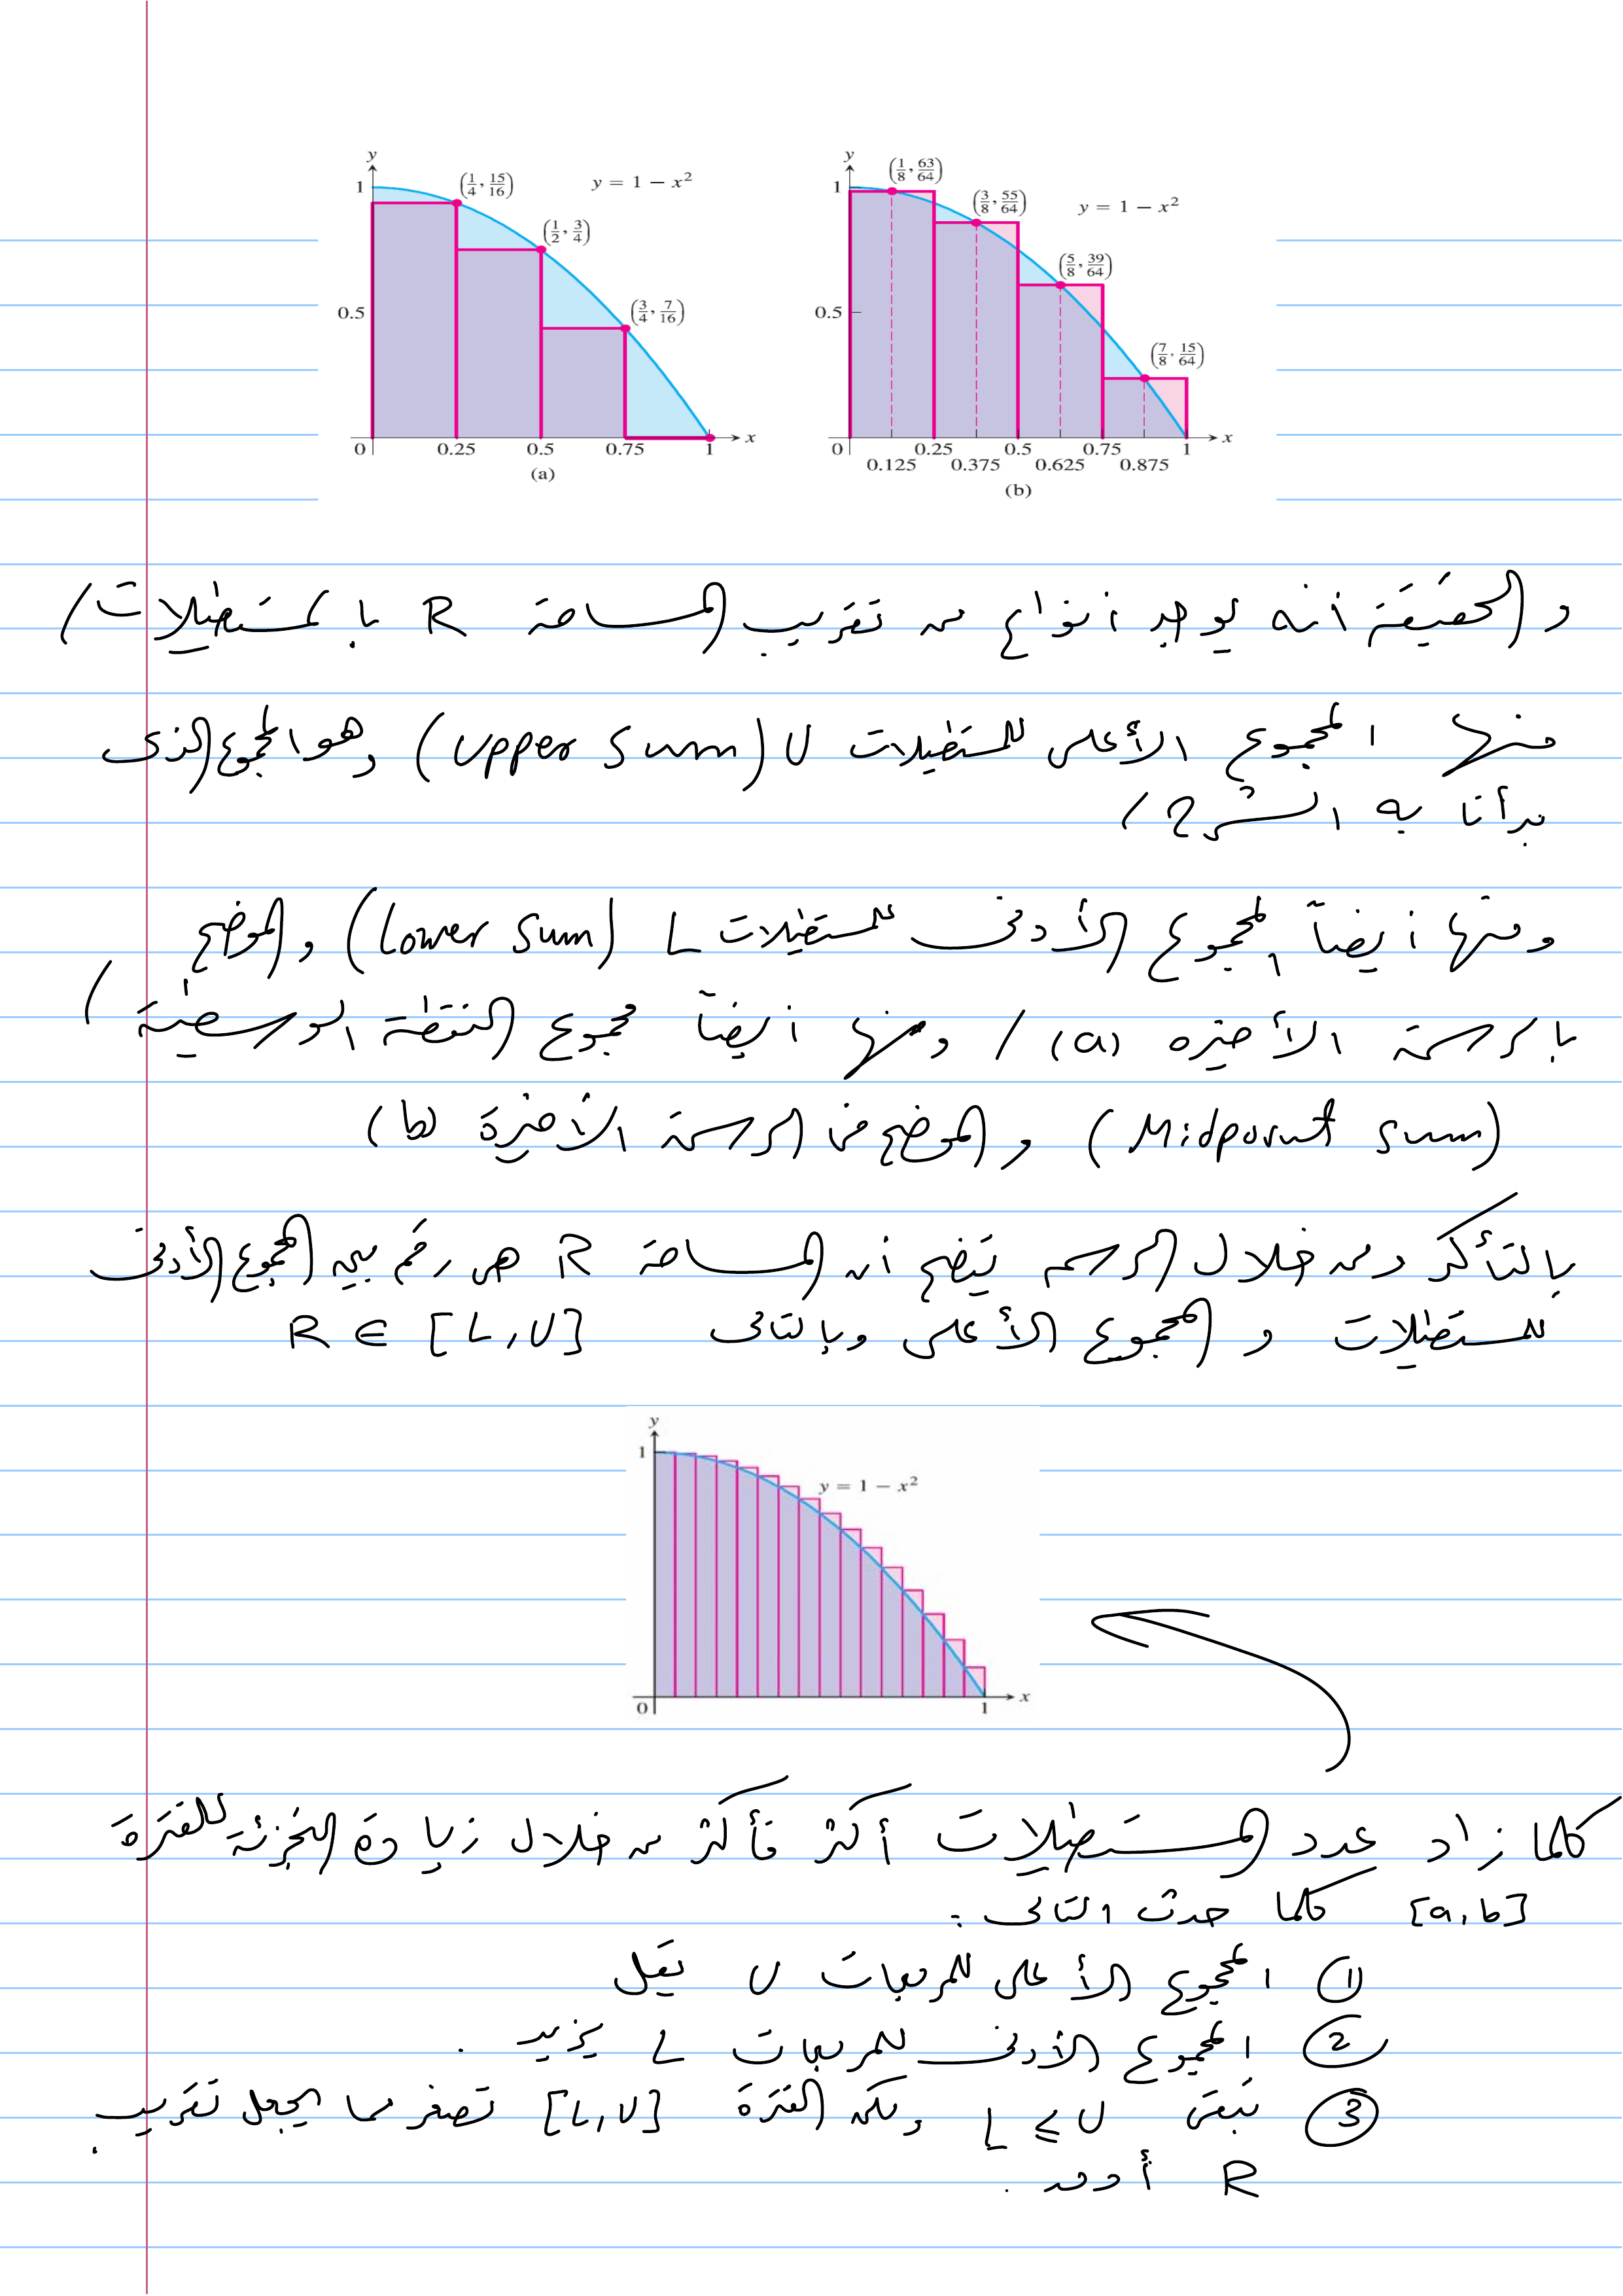 y
1
(1/4, 15/16)
y = 1 − x²
(1/2, 3/4)
0.5
(3/4, 7/16)
0 0.25 0.5 0.75 1 x
(a)
y
1
(1/8, 63/64)
(3/8, 55/64)
y = 1 − x²
(5/8, 39/64)
0.5
(7/8, 15/64)
0 0.25 0.5 0.75 1 x
0.125 0.375 0.625 0.875
(b)
و الحقيقة أنه يوجد أنواع من تقريب المساحة R بالمستطيلات /
منها المجموع الأعلى للمستطيلات U (Upper Sum) وهو المجموع الذى
بدأنا به الشرح /
ومنها أيضاً المجموع الأدنى للمستطيلات L (Lower Sum) والموضح
بالرسمة الأخيره (a) / ومنها أيضاً مجموع النقطة الوسطية /
(Midpoint Sum) والموضح فى الرسمة الأخيرة (b)
بالتأكد ومن خلال الرسم يتضح أن المساحة R هى رقم بين المجموع الأدنى
للمستطيلات و المجموع الأعلى وبالتالى R ∈ [L, U]
y
1
y = 1 − x²
0 1 x
كلما زاد عدد المستطيلات أكثر فأكثر من خلال زيادة التجزئة للفترة
[a, b] كلما حدث التالى :
① المجموع الأعلى للمربعات U يقل
② المجموع الأدنى للمربعات L يزيد .
③ تبقى L ⩽ U ولكن الفترة [L, U] تصغر مما يجعل تقريب
R أدق .